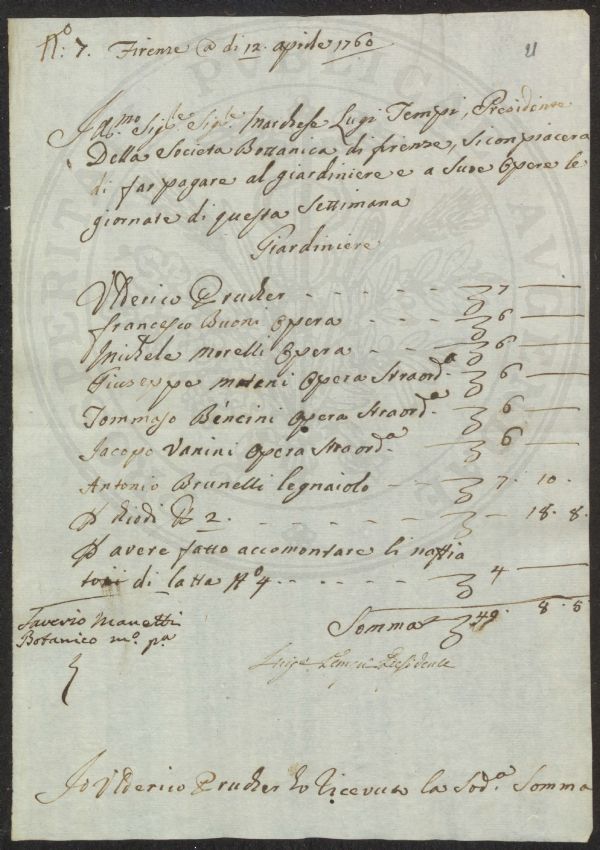 N.º 7. Firenze @ di 12. aprile 1760
11
Ill.mo Sig.le Sig.le Marchese Luigi Tempi, Presidente
Della Societa Bottanica di firenze, si conpiacera
di far pagare al giardiniere e a sue Opere le
giornate di questa Settimana
Giardiniere
Ulderico Prucher - - - - - 7 —
francesco Buoni Opera - - - - 6 —
Michele Morelli Opera - - - 6 —
Giuseppe Opera Straord.a 6 —
Tommaso Bencini Opera Straord.a 6 —
Jacopo Vanini Opera Straord.a 6 —
Antonio Brunelli legnaiolo - - 7. 10.
P chiodi 2. - - - - - - - 18. 8.
P avere fatto accomontare li naffia
toii di latta Nº 4. - - - - - 4 —
Saverio Manetti
Botanico m.º p.a
Somma 49. 8. 8
Luigi Tempi Presidente
Io Ulderico Prucher ho ricevuto la Sod.a Somma
PERITA PUBLICA AUGENT